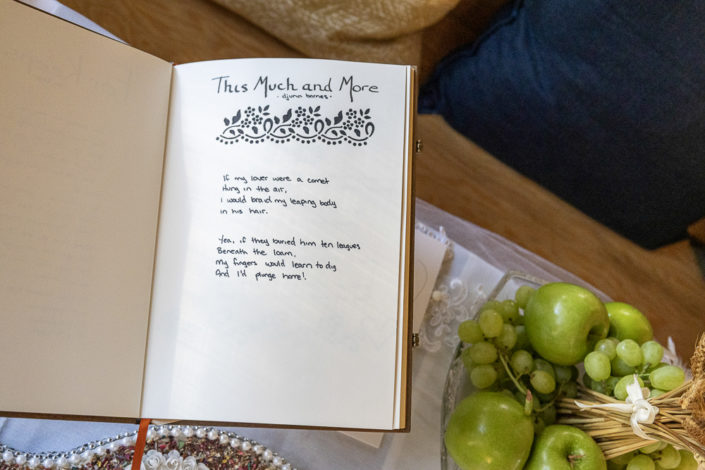 This Much and More
· djuna barnes ·
If my lover were a comet
Hung in the air,
I would braid my leaping body
in his hair.
Yea, if they buried him ten leagues
Beneath the loam,
My fingers would learn to dig
And I'd plunge home!